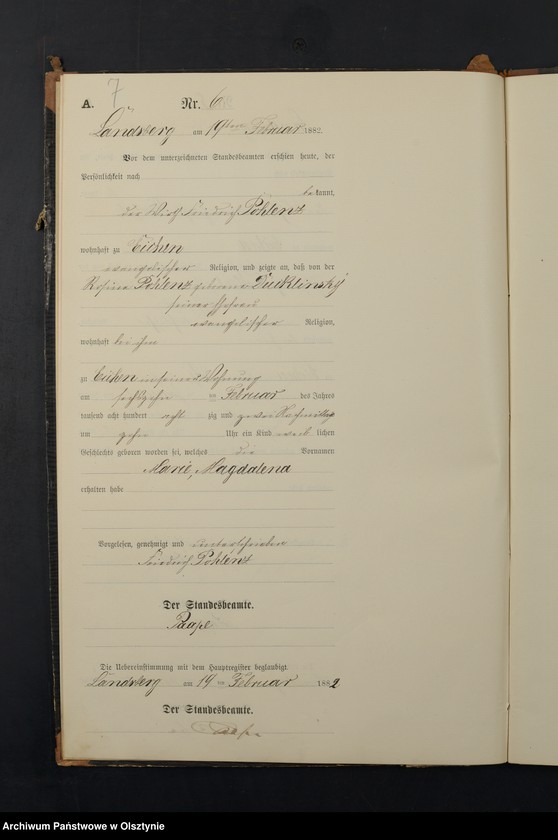 A. 7 Nr. 6
Landsberg am 19ten Februar 1882.
Vor dem unterzeichneten Standesbeamten erschien heute, der
Persönlichkeit nach
bekannt,
der Wirth Friedrich Pohlenz
wohnhaft zu Eichen
evangelischer Religion, und zeigte an, daß von der
Rosina Pohlenz geborene
seiner Ehefrau
evangelischer Religion,
wohnhaft bei ihm
zu Eichen in seiner Wohnung
am sechszehn ten Februar des Jahres
tausend acht hundert acht zig und zwei Nachmittag
um zehn Uhr ein Kind weib lichen
Geschlechts geboren worden sei, welches die Vornamen
Marie, Magdalena
erhalten habe
Vorgelesen, genehmigt und unterschrieben
Friedrich Pohlenz
Der Standesbeamte.
Paape
Die Uebereinstimmung mit dem Hauptregister beglaubigt.
Landsberg am 19 ten Februar 1882
Der Standesbeamte.
Paape
Archiwum Państwowe w Olsztynie